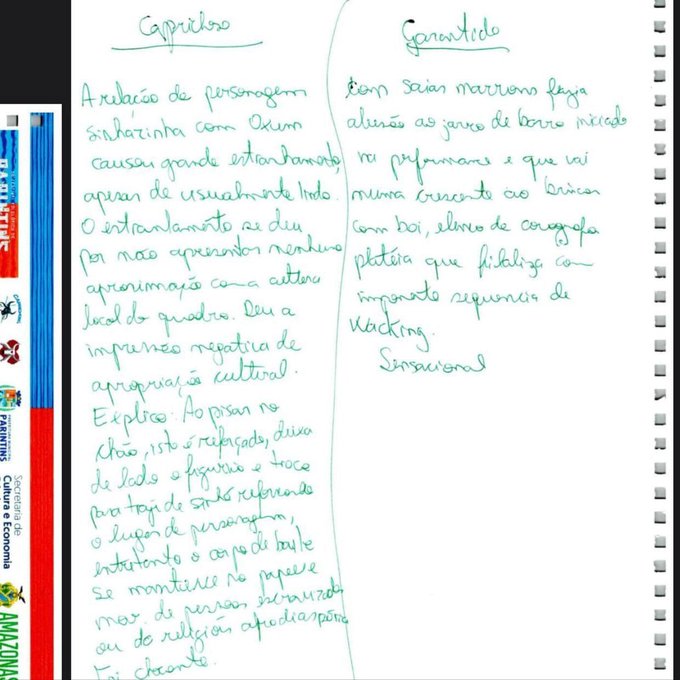 Caprichoso
A relação de personagem
sinhazinha com Oxum
causou grande estranhamento,
apesar de usualmente lindo.
O estranhamento se deu
por não apresentar nenhuma
aproximação com a cultura
local do quadro. Deu a
impressão negativa de
apropriação cultural.
Explico: Ao pisar no
chão, isto é reforçado, deixa
de lado o figurino e troca
para traje de sinhá reforçando
o lugar de personagem,
entretanto o corpo de baile
se mantivesse no
de pessoas escravizadas
ou de religiões afrodiaspórica
Foi chocante.
Garantido
Com saias marrons fazia
alusão ao jarro de barro iniciado
na performance e que vai
numa crescente ao brincar
com boi, elenco de
platéia que finaliza com
imponente sequencia de
Wacking.
Sensacional
PARINTINS
PARINTINS
Secretaria de
Cultura e Economia
AMAZONAS